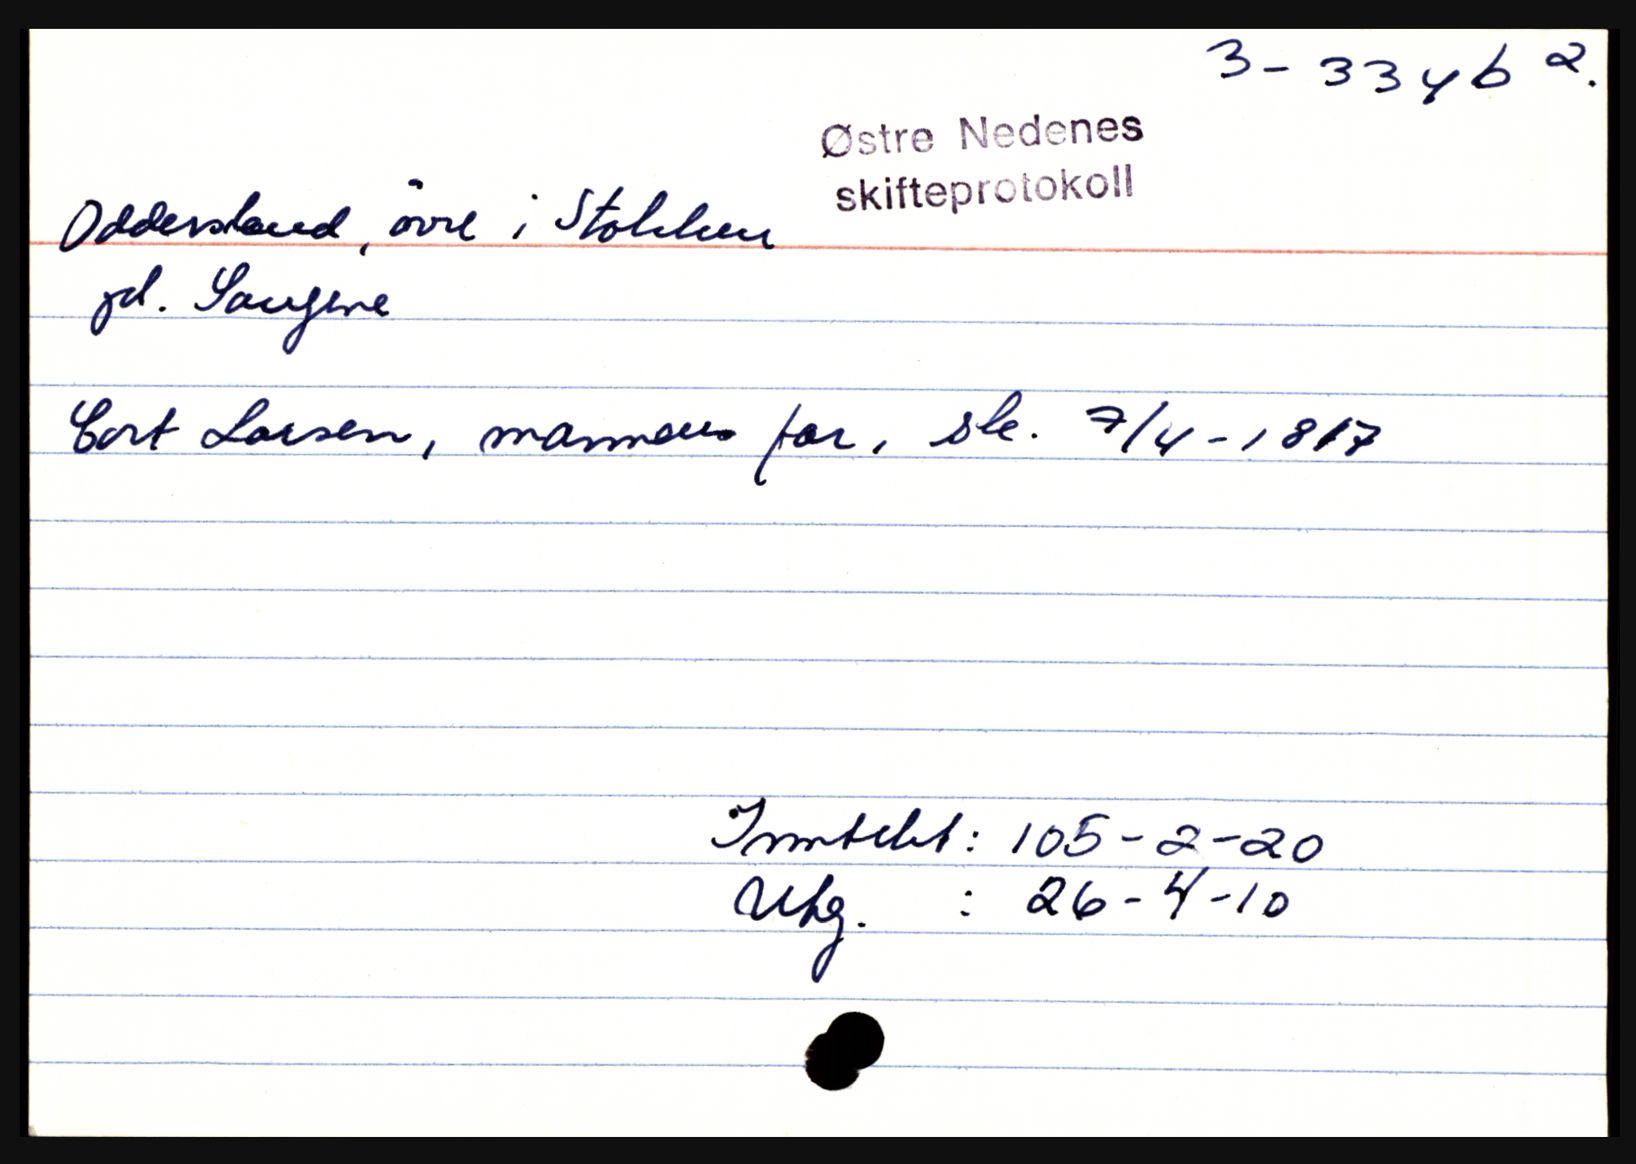 3-334b 2.
Østre Nedenes
skifteprotokoll
Oddersland, övre i Stokken
gd. Saugene
Cort Larsen, mannens far, sk. 7/4-1817
Inntekt: 105-2-20
Utg. : 26-4-10